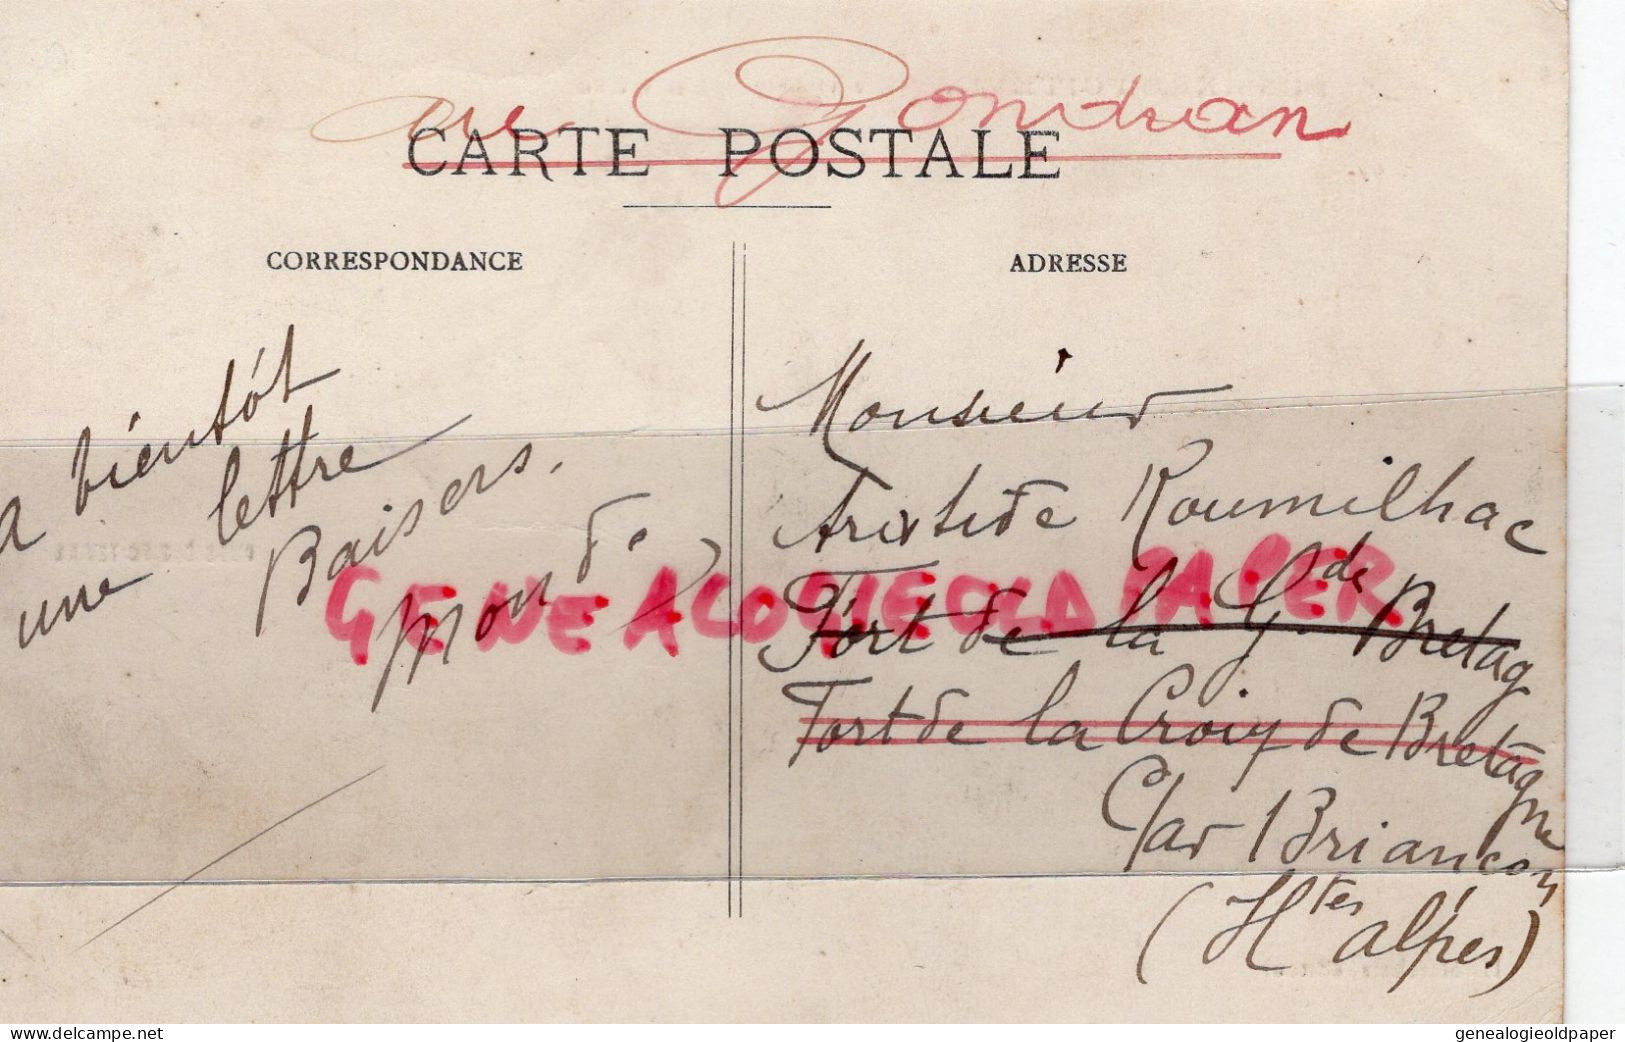 au Gondran
CARTE POSTALE
CORRESPONDANCE
a bientôt
une lettre
Baisers.
GENEALOGIEOLDPAPER
ADRESSE
Monsieur
Aristide Roumilhac
Fort de la Gde Bretag
Fort de la Croix de Bretagne
Par Briançon
(Htes Alpes)
delcampe.net
genealogieoldpaper